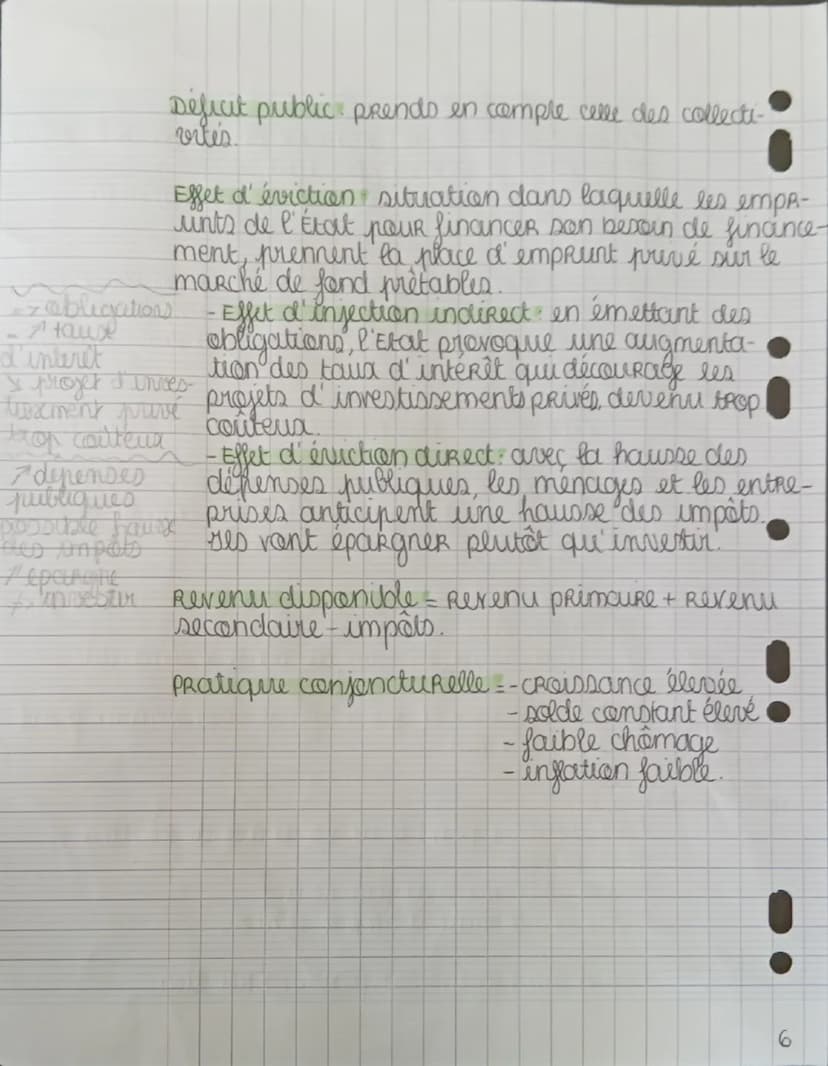 Déficit public : prends en comple celle des collecti-
vités.
Effet d'éviction : situation dans laquelle les empr-
unts de l'État pour financer son besoin de finance-
ment, prennent la place d'emprunt privé sur le
marché de fond prêtables.
- Effet d'injection indirect : en émettant des
obligations, l'Etat provoque une augmenta-
tion des taux d'intérêt qui décourage les
projets d'investissements privés, devenu trop
coûteux.
- Effet d'éviction direct : avec la hausse des
dépenses publiques, les ménages et les entre-
prises anticipent une hausse des impôts.
Iles vont épargner plutôt qu'investir.
=> obligations
- ↗ taux
d'interêt
↘ projet d'inves-
tissement privé
trop coûteux
↗ dépenses
publiques
possible hausse
des impôts
↗ épargne
investir
Revenu disponible = Revenu primaire + Revenu
secondaire - impôts.
Pratique conjoncturelle = - croissance élevée
- solde constant élevé
- faible chômage
- inflation faible.
6